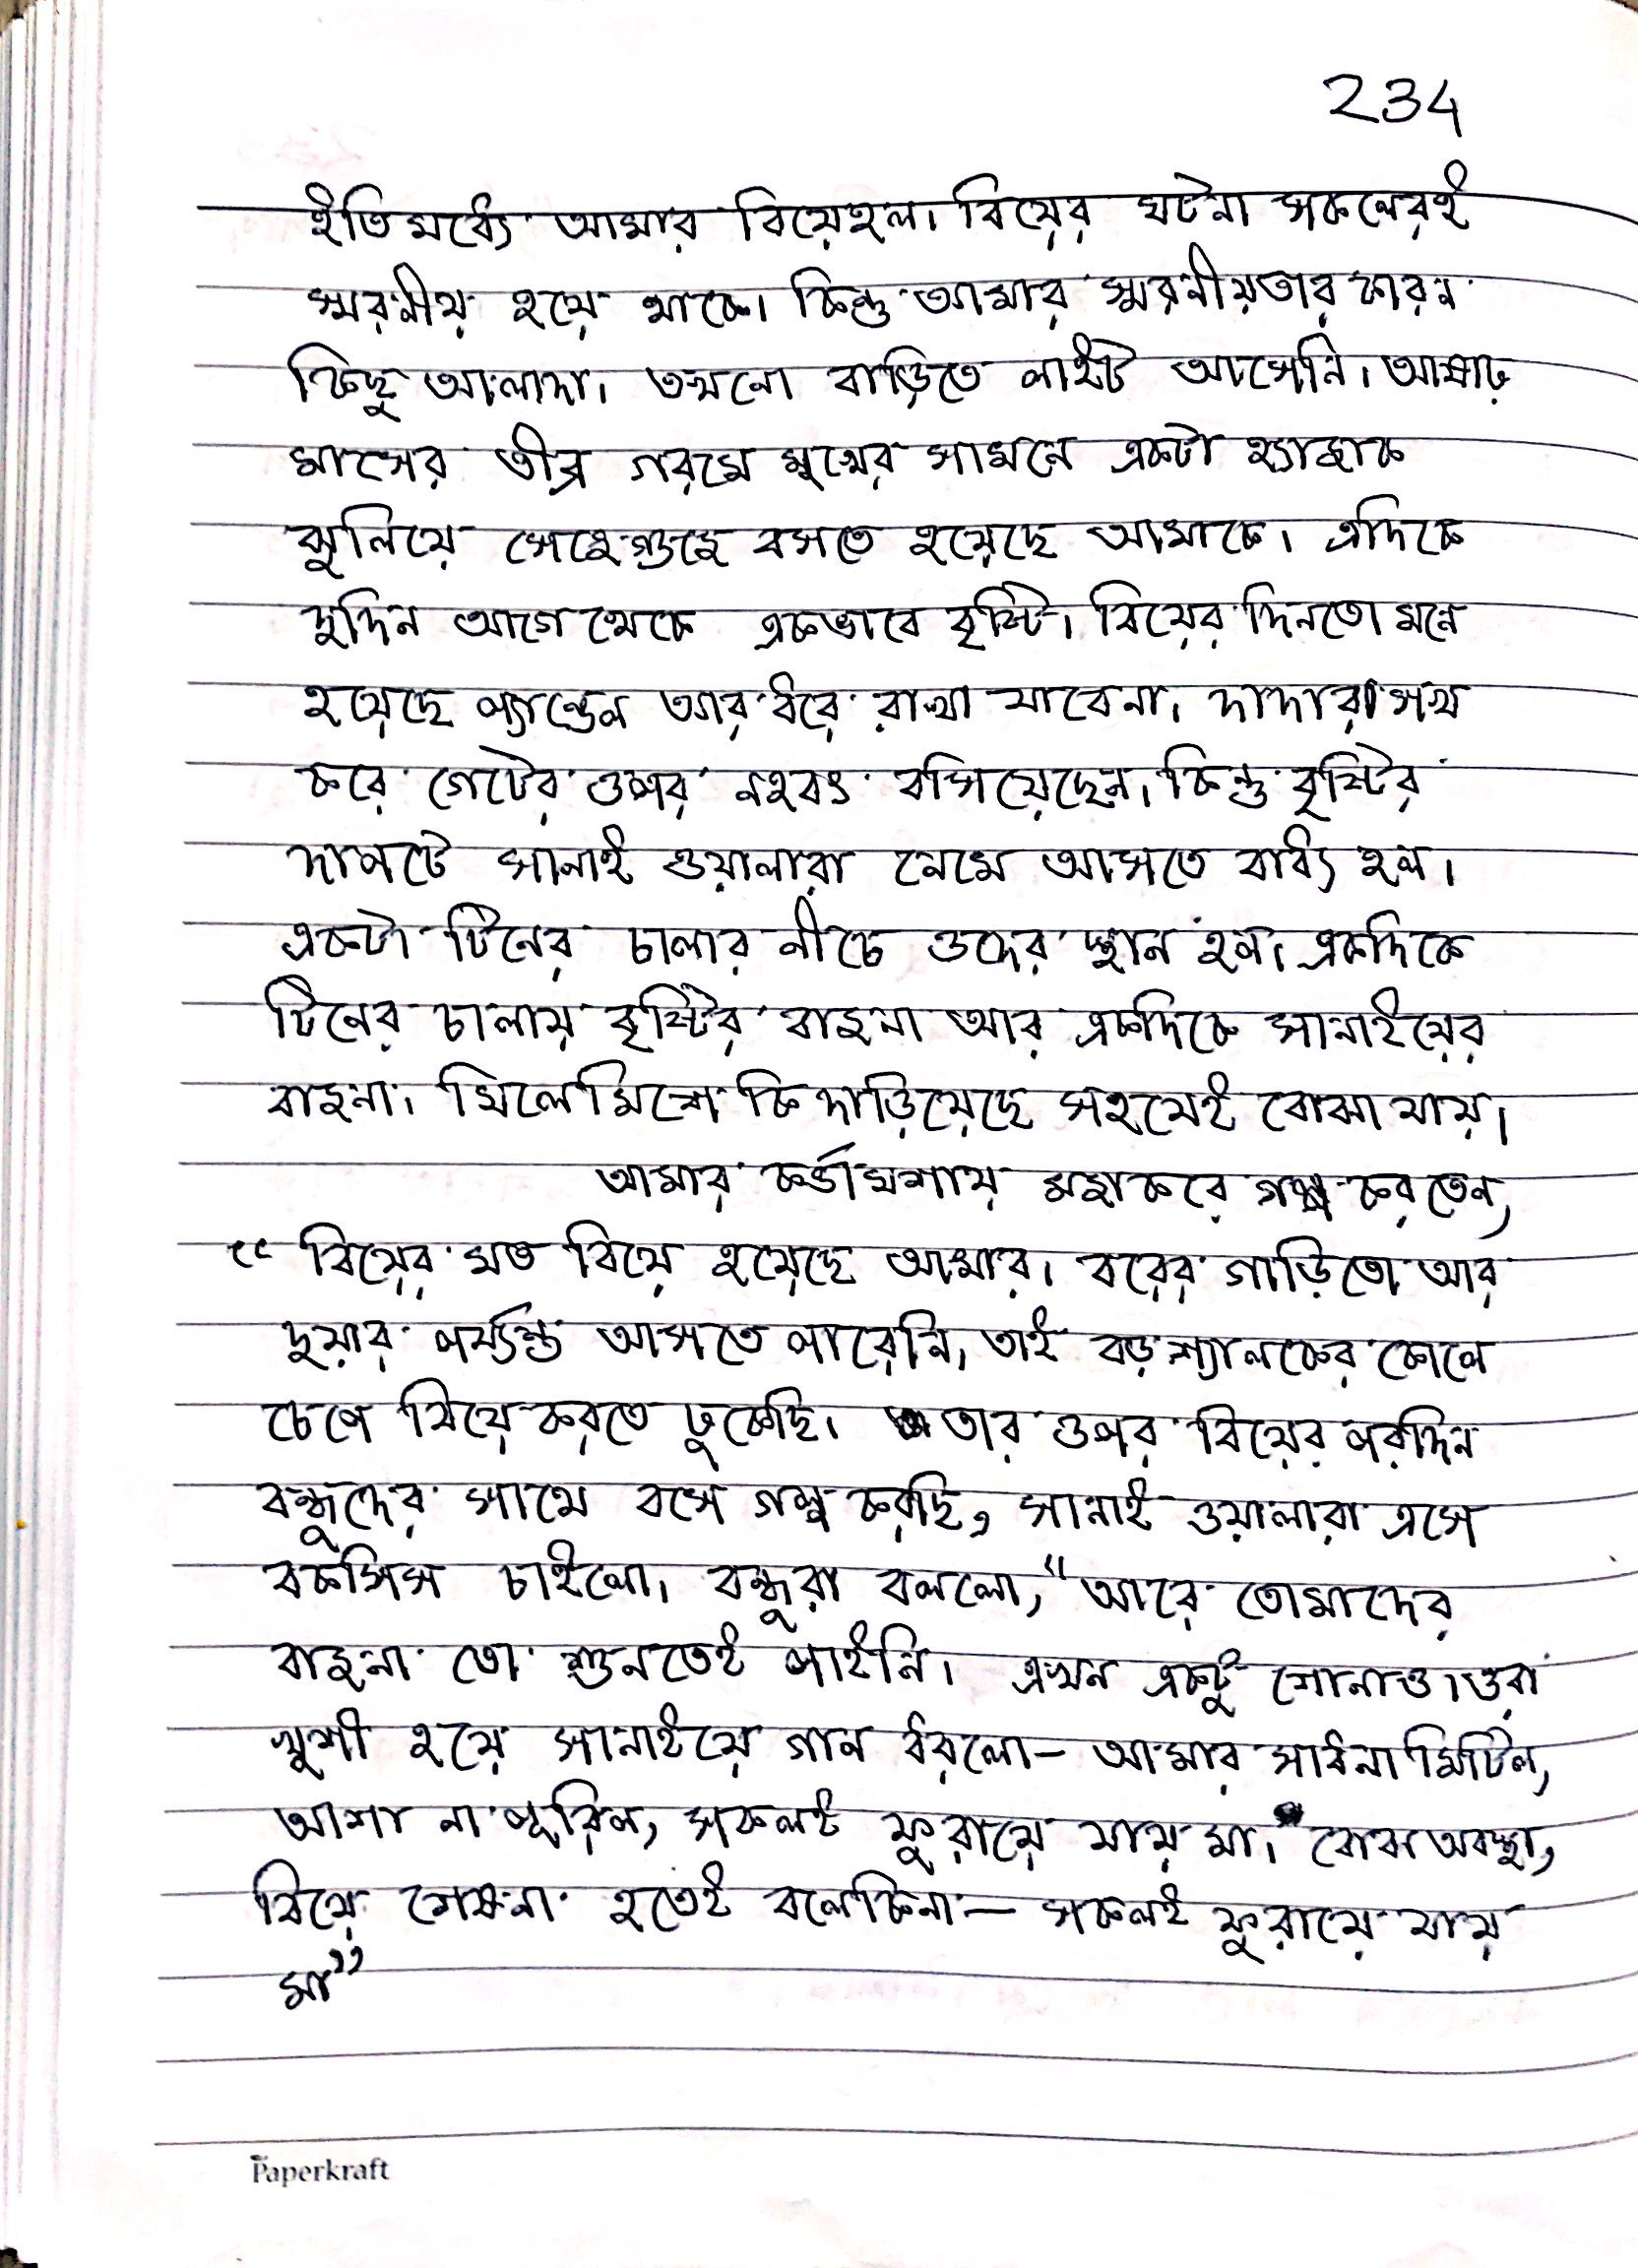 234
ইতিমধ্যে আমার বিয়েহল। বিয়ের ঘটনা সকলেরই
স্মরণীয় হয়ে থাকে। কিন্তু আমার স্মরনীয়তার কারন
কিছু আলাদা। তখনো বাড়িতে লাইট আসেনি। আষাঢ়
মাসের তীব্র গরমে মুখের সামনে একটা হ্যাজাক
ঝুলিয়ে সেজেগুজে বসতে হয়েছে আমাকে। এদিকে
দুদিন আগে থেকে একভাবে বৃষ্টি। বিয়ের দিনতো মনে
হয়েছে প্যান্ডেল আর ধরে রাখা যাবেনা। দাদারা সখ
করে গেটের ওপর নহবৎ বসিয়েছেন। কিন্তু বৃষ্টির
দাপটে সানাই ওয়ালারা নেমে আসতে বাধ্য হল।
একটা টিনের চালার নীচে ওদের স্থান হল। একদিকে
টিনের চালায় বৃষ্টির বাজনা আর একদিকে সানাইয়ের
বাজনা। মিলেমিশে কি দাড়িয়েছে সহযেই বোঝা যায়।
আমার কর্তামশায় মজাকরে গল্প করতেন,
“বিয়ের মত বিয়ে হয়েছে আমার। বরের গাড়িতো আর
দুয়ার পর্য্যন্ত আসতে পারেনি, তাই বড় শ্যালকের কোলে
চেপে বিয়ে করতে ঢুকেছি। তার ওপর বিয়ের পরদিন
বন্ধুদের সাথে বসে গল্প করছি, সানাই ওয়ালারা এসে
বকসিস চাইলো। বন্ধুরা বললো, “আরে তোমাদের
বাজনা তো শুনতেই পাইনি। এখন একটু শোনাও। ওরা
খুশী হয়ে সানাইয়ে গান ধরলো— আমার সাধনা মিটিল,
আশা না পূরিল, সকলই ফুরায়ে যায় মা।” বোঝ অবস্থা,
বিয়ে শেষ না হতেই বলেকিনা— সকলই ফুরায়ে যায়
মা”
Paperkraft